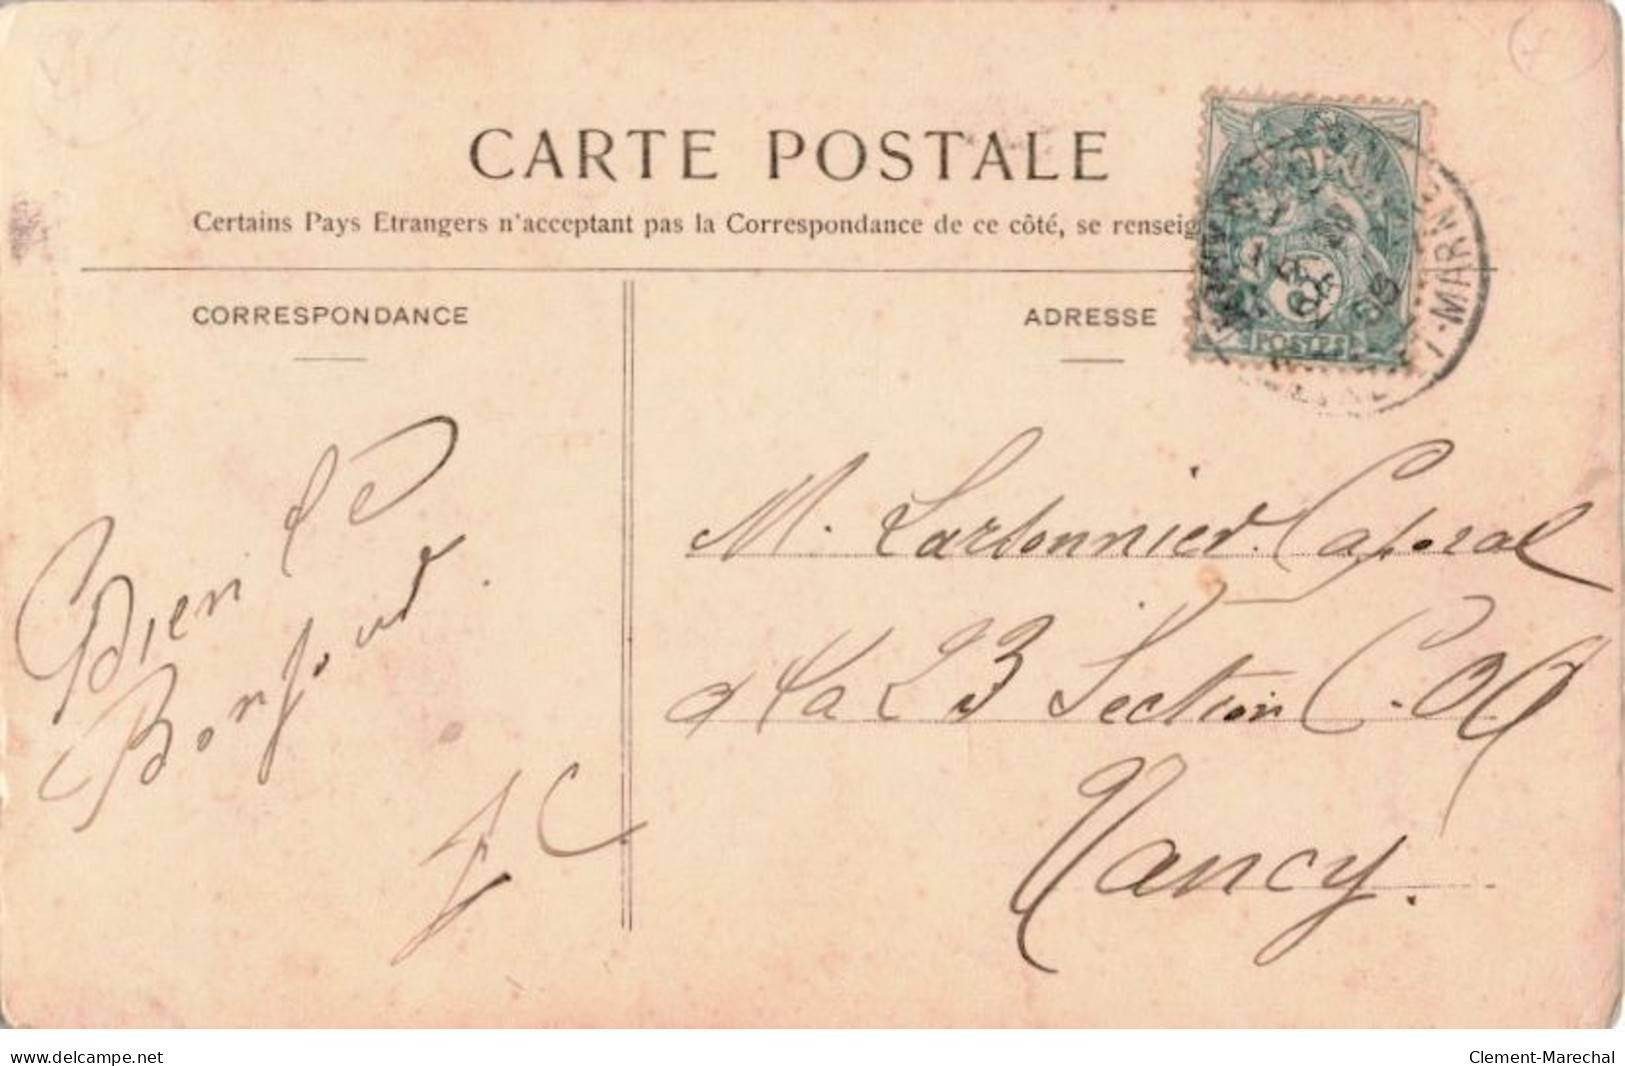 CARTE POSTALE
Certains Pays Etrangers n'acceptant pas la Correspondance de ce côté, se renseig
CORRESPONDANCE
ADRESSE
POSTES
MARNE
Bien le
Bonjour.
M. Carbonnier Caporal
à la 23 Section C.O.A
Nancy.
www.delcampe.net
Clement-Marechal